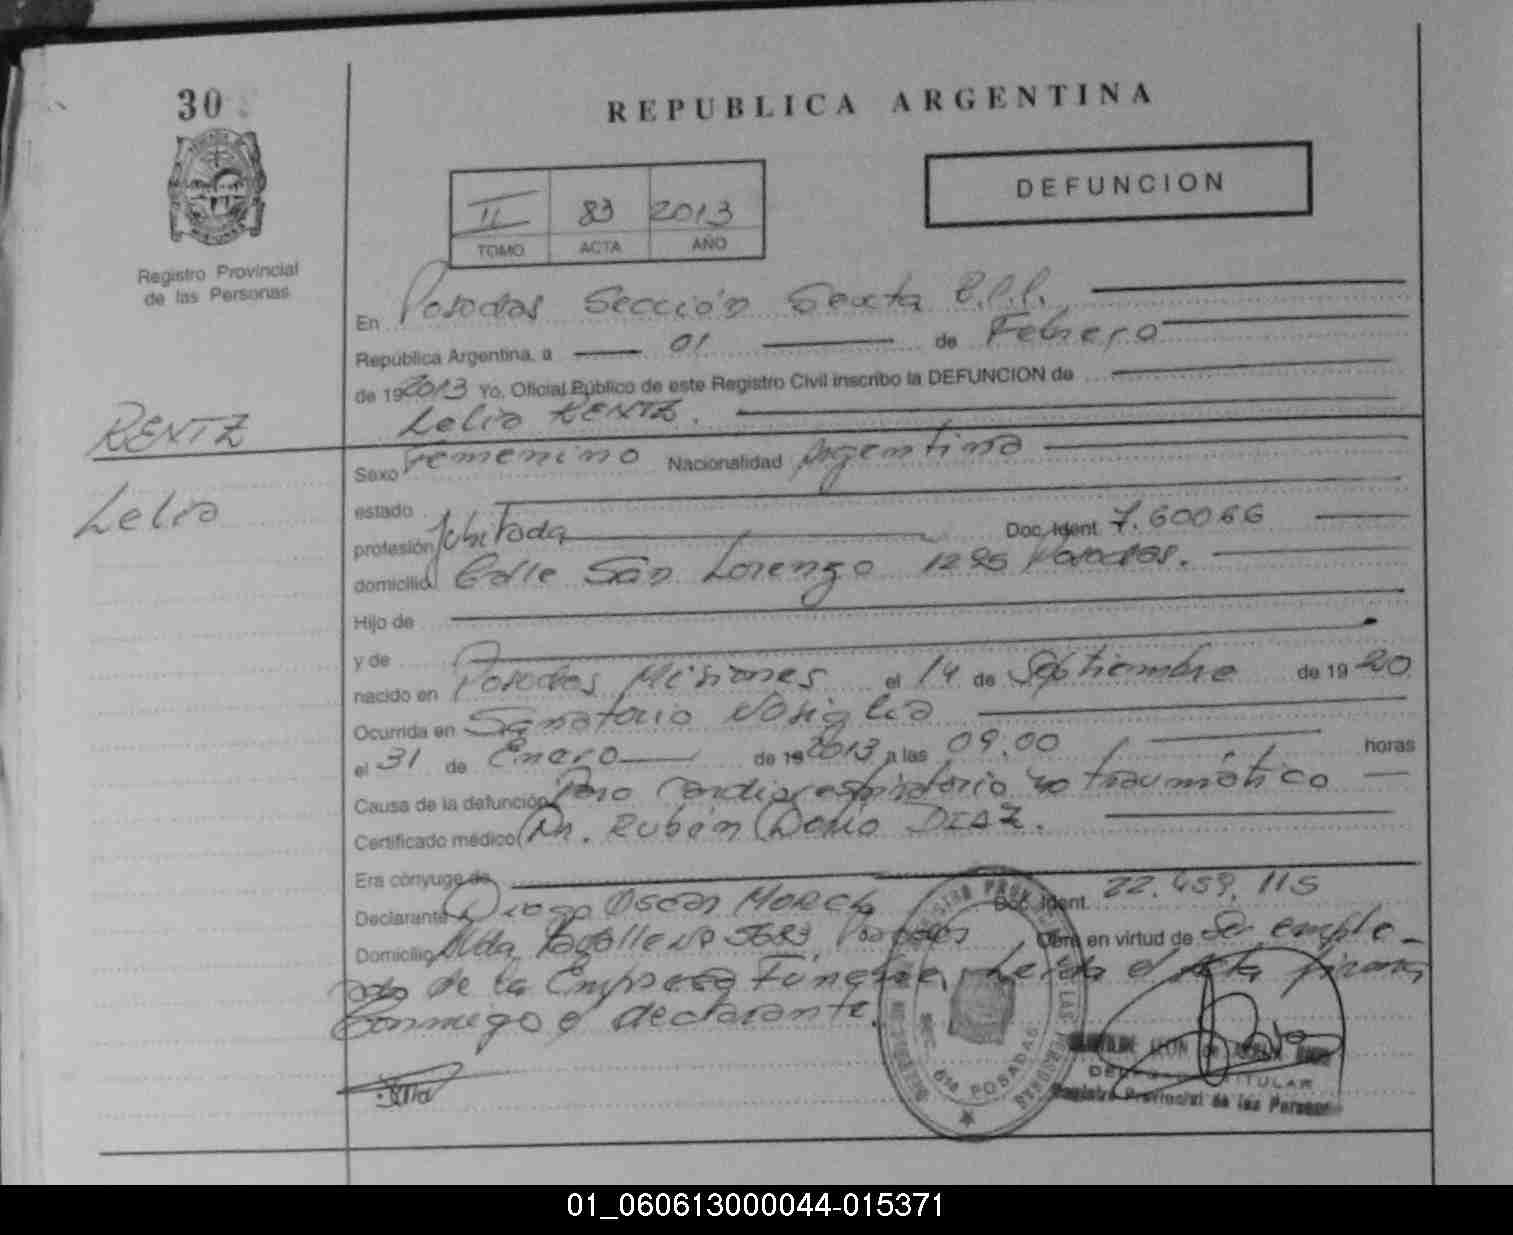 30
REPUBLICA ARGENTINA
DEFUNCION
II 83 2013
TOMO ACTA AÑO
Registro Provincial
de las Personas
En Posadas Sección Sexta
República Argentina, a 01 de Febrero
de 19 2013 Yo, Oficial Público de este Registro Civil inscribo la DEFUNCION de
Lelia RENTZ.
RENTZ
Lelia
Sexo Femenino Nacionalidad Argentina
estado
profesión Jubilada Doc. Ident. 7.60066
domicilio Calle San Lorenzo 1295 Posadas.
Hijo de
y de
nacido en Posadas Misiones el 14 de Septiembre de 19 20
Ocurrida en Sanatorio Nosiglia
el 31 de Enero de 19 2013 a las 09.00 horas
Causa de la defunción Paro Cardiorespiratorio no traumático
Certificado médico Dr. Rubén Darío DIAZ.
Era cónyuge de
Declarante Diego Oscar Doc. Ident. 22.459.115
Domicilio Nº 5683 Posadas Obra en virtud de Ser emple-
ado de la Empresa Fúnebre, Leída el Acta firma
conmigo el declarante.
REGISTRO PROVINCIAL DE LAS PERSONAS
SECC. 6ta POSADAS
MISIONES
TITULAR
Registro Provincial de las Personas
01_060613000044-015371